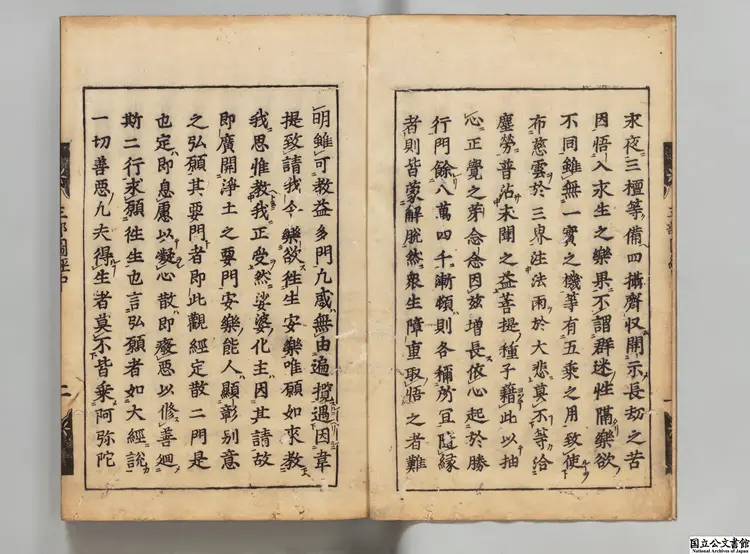 求夜三檀等備四攝齊収開示長劫之苦
因悟入求生之樂果不謂群迷性隔樂欲
不同雖無一實之機等有五乘之用致使
布慈雲於三界注法雨於大悲莫不等洽
塵勞普沾未聞之益菩提種子藉此以抽
心正覺之芽念念因玆增長依心起於勝
行門餘八萬四千漸頓則各稱所宜隨緣
者則皆蒙解脱然衆生障重取悟之者難
明雖可教益多門凡惑無由遍攬遇因韋
提致請我今樂欲徃生安樂唯願如來教
我思惟教我正受然娑婆化主因其請故
即廣開淨土之要門安樂能人顯彰別意
之弘願其要門者即此觀經定散二門是
也定即息慮以凝心散即癈惡以修善迴
斯二行求願徃生也言弘願者如大經説
一切善惡凡夫得生者莫不皆乘阿弥陀
国立公文書館
National Archives of Japan